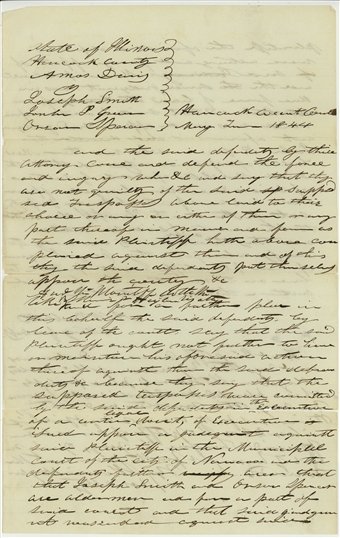 State of Illinois
Hancock County
Amos Davis
vs
Joseph Smith
John P. Green
Orson Spencer
Hancock Circuit Court
May Term 1844
and the said defendants by their
Attorny. Come and defend the force
and injury &c & and say that they
are not guilty of the said supposed
Trespass above laid to their
charge or any or either of them or any
part thereof in manner and form as
the said Plaintiff hath above com
plained against them and of this
they the said defendants put themselves
uppon the country &c
and the Plaintiff doth the
like
And for further plea in
this behalf the said defendants by
leave of the court say that the said
Plaintiff ought not further to have
or maintain his aforesaid action
thereof against them the said defen
dants &c because they say that the
supposed trespasses were committed
by the said defendants in the execution
of a certain of execution
issued uppon a judgment against
said Plaintiff in the Municipal
Court of the City of Nauvoo and the
defendants further aver that
that Joseph Smith and Orson Spencer
are aldermen and form a part of
said court and that said judgment
was rendered against said